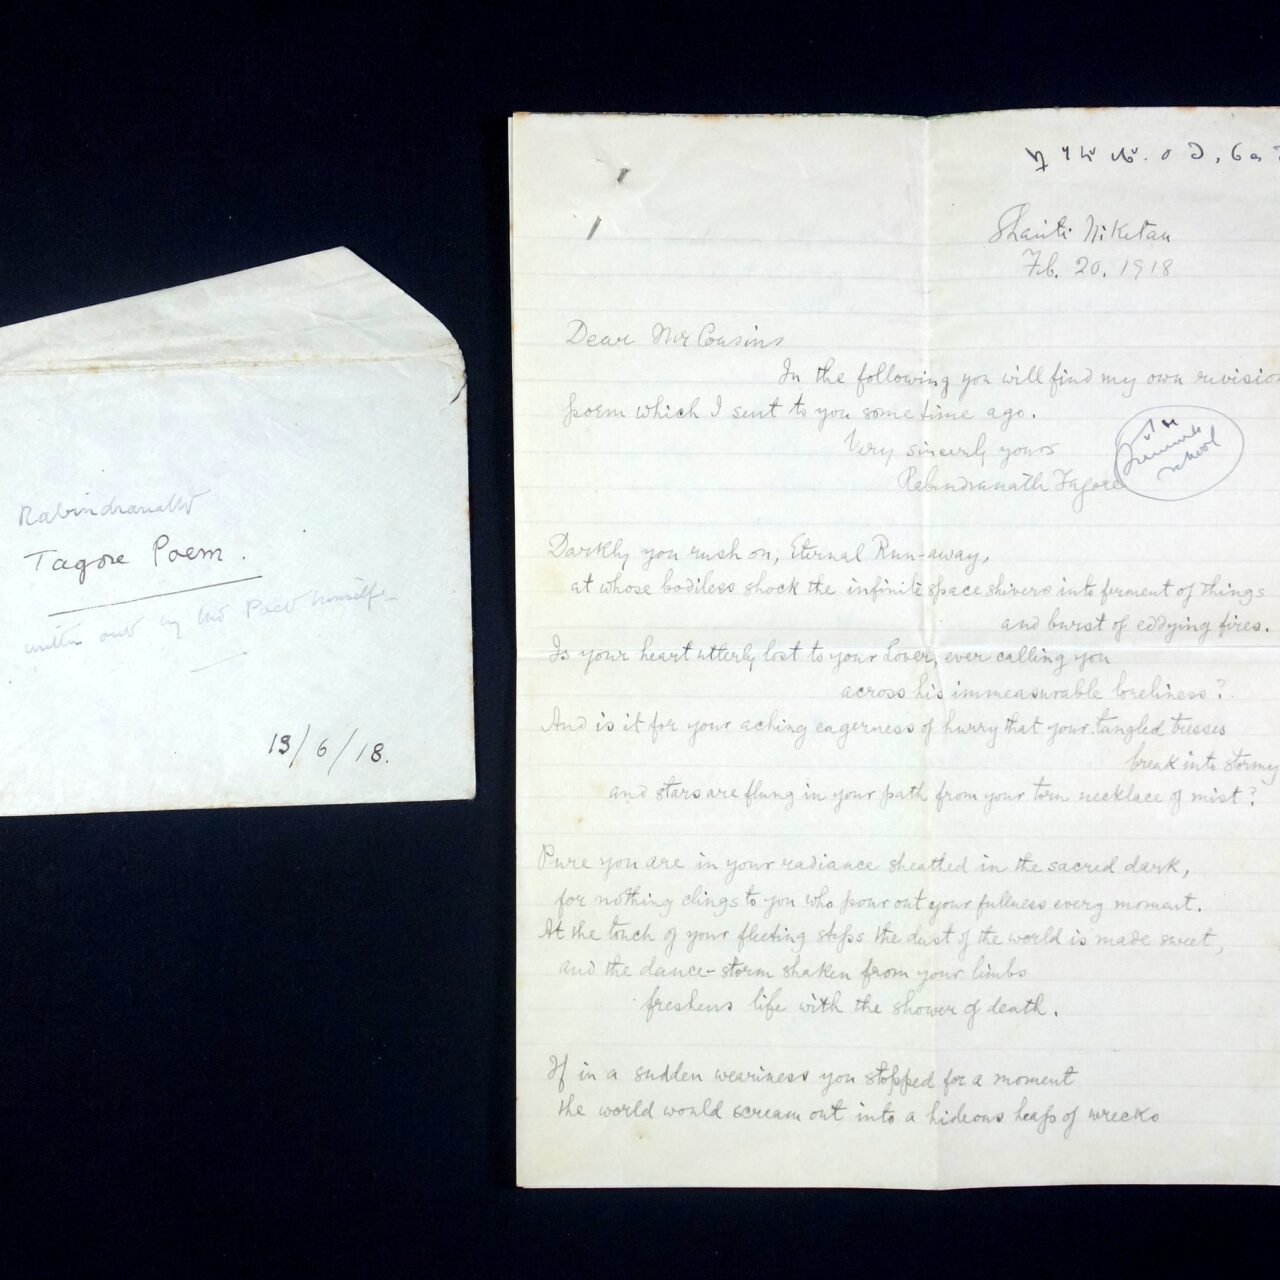 Rabindranath
Tagore Poem.
written out by the Poet himself
13/6/18.
Shanti Niketan
Feb. 20. 1918
Dear Mr Cousins
In the following you will find my own revision
poem which I sent to you some time ago.
Very sincerely yours
Rabindranath Tagore
school
Darkly you rush on, Eternal Run-away,
at whose bodiless shock the infinite space shivers into ferment of things
and burst of eddying fires.
Is your heart utterly lost to your Lover, ever calling you
across his immeasurable loneliness?
And is it for your aching eagerness of hurry that your tangled tresses
break into stormy
and stars are flung in your path from your torn necklace of mist?
Pure you are in your radiance sheathed in the sacred dark,
for nothing clings to you who pour out your fullness every moment.
At the touch of your fleeting steps the dust of the world is made sweet,
and the dance-storm shaken from your limbs
freshens life with the shower of death.
If in a sudden weariness you stopped for a moment
the world would scream out into a hideous heap of wrecks